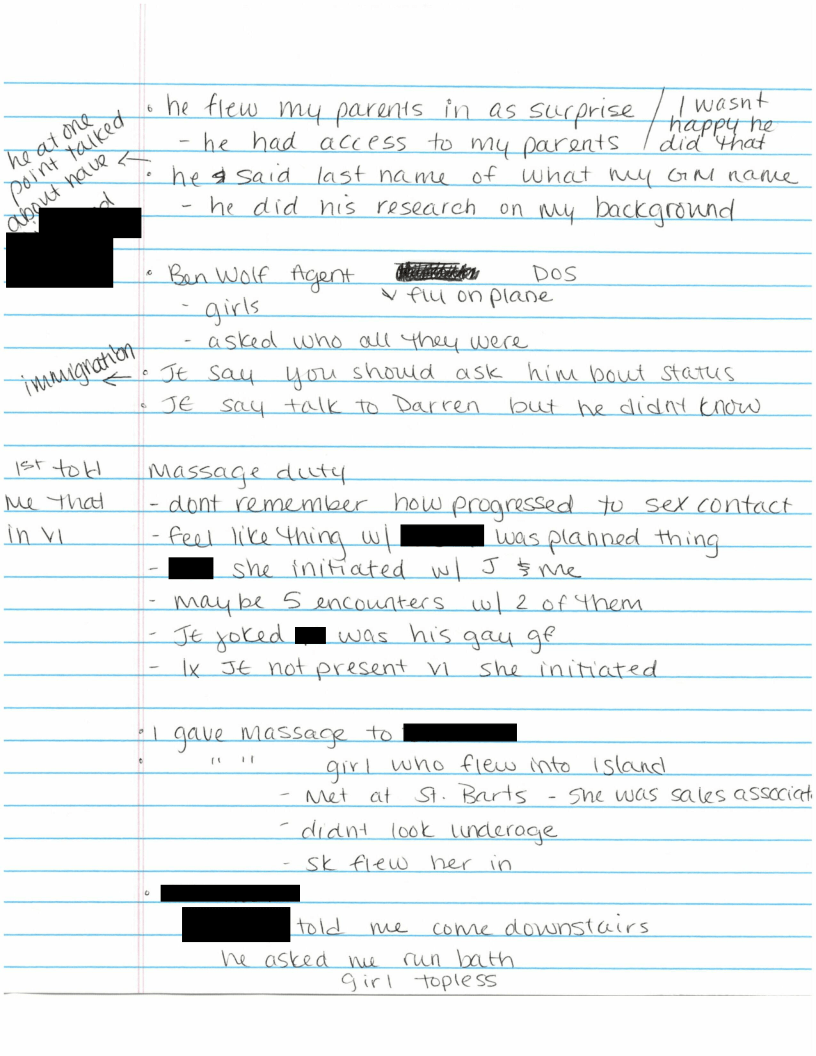 • he flew my parents in as surprise / I wasnt happy he did that
- he had access to my parents
he at one point talked about have ←
• he said last name of what my GM name
- he did his research on my background
• Ben Wolf Agent DOS
- girls ✓ flu on plane
- asked who all they were
immigration ←
• JE say you should ask him bout status
• JE say talk to Darren but he didnt know
1st told Massage duty
me that - dont remember how progressed to sex contact
in VI - feel like thing w/ was planned thing
- she initiated w/ J & me
- maybe 5 encounters w/ 2 of them
- JE joked was his gay gf
- 1x JE not present VI she initiated
• I gave massage to
• " " girl who flew into Island
- Met at St. Barts - She was sales associat
- didnt look underage
- SK flew her in
•
told me come downstairs
he asked me run bath
girl topless